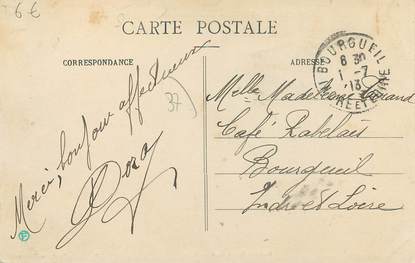 6€
CARTE POSTALE
CORRESPONDANCE
ADRESSE
BOURGUEIL
6 30
1 - 7
13
INDRE ET LOIRE
37
Merci, bonjour affectueux
Dora
Melle Madeleine
Café Rabelais
Bourgueil
Indre et Loire